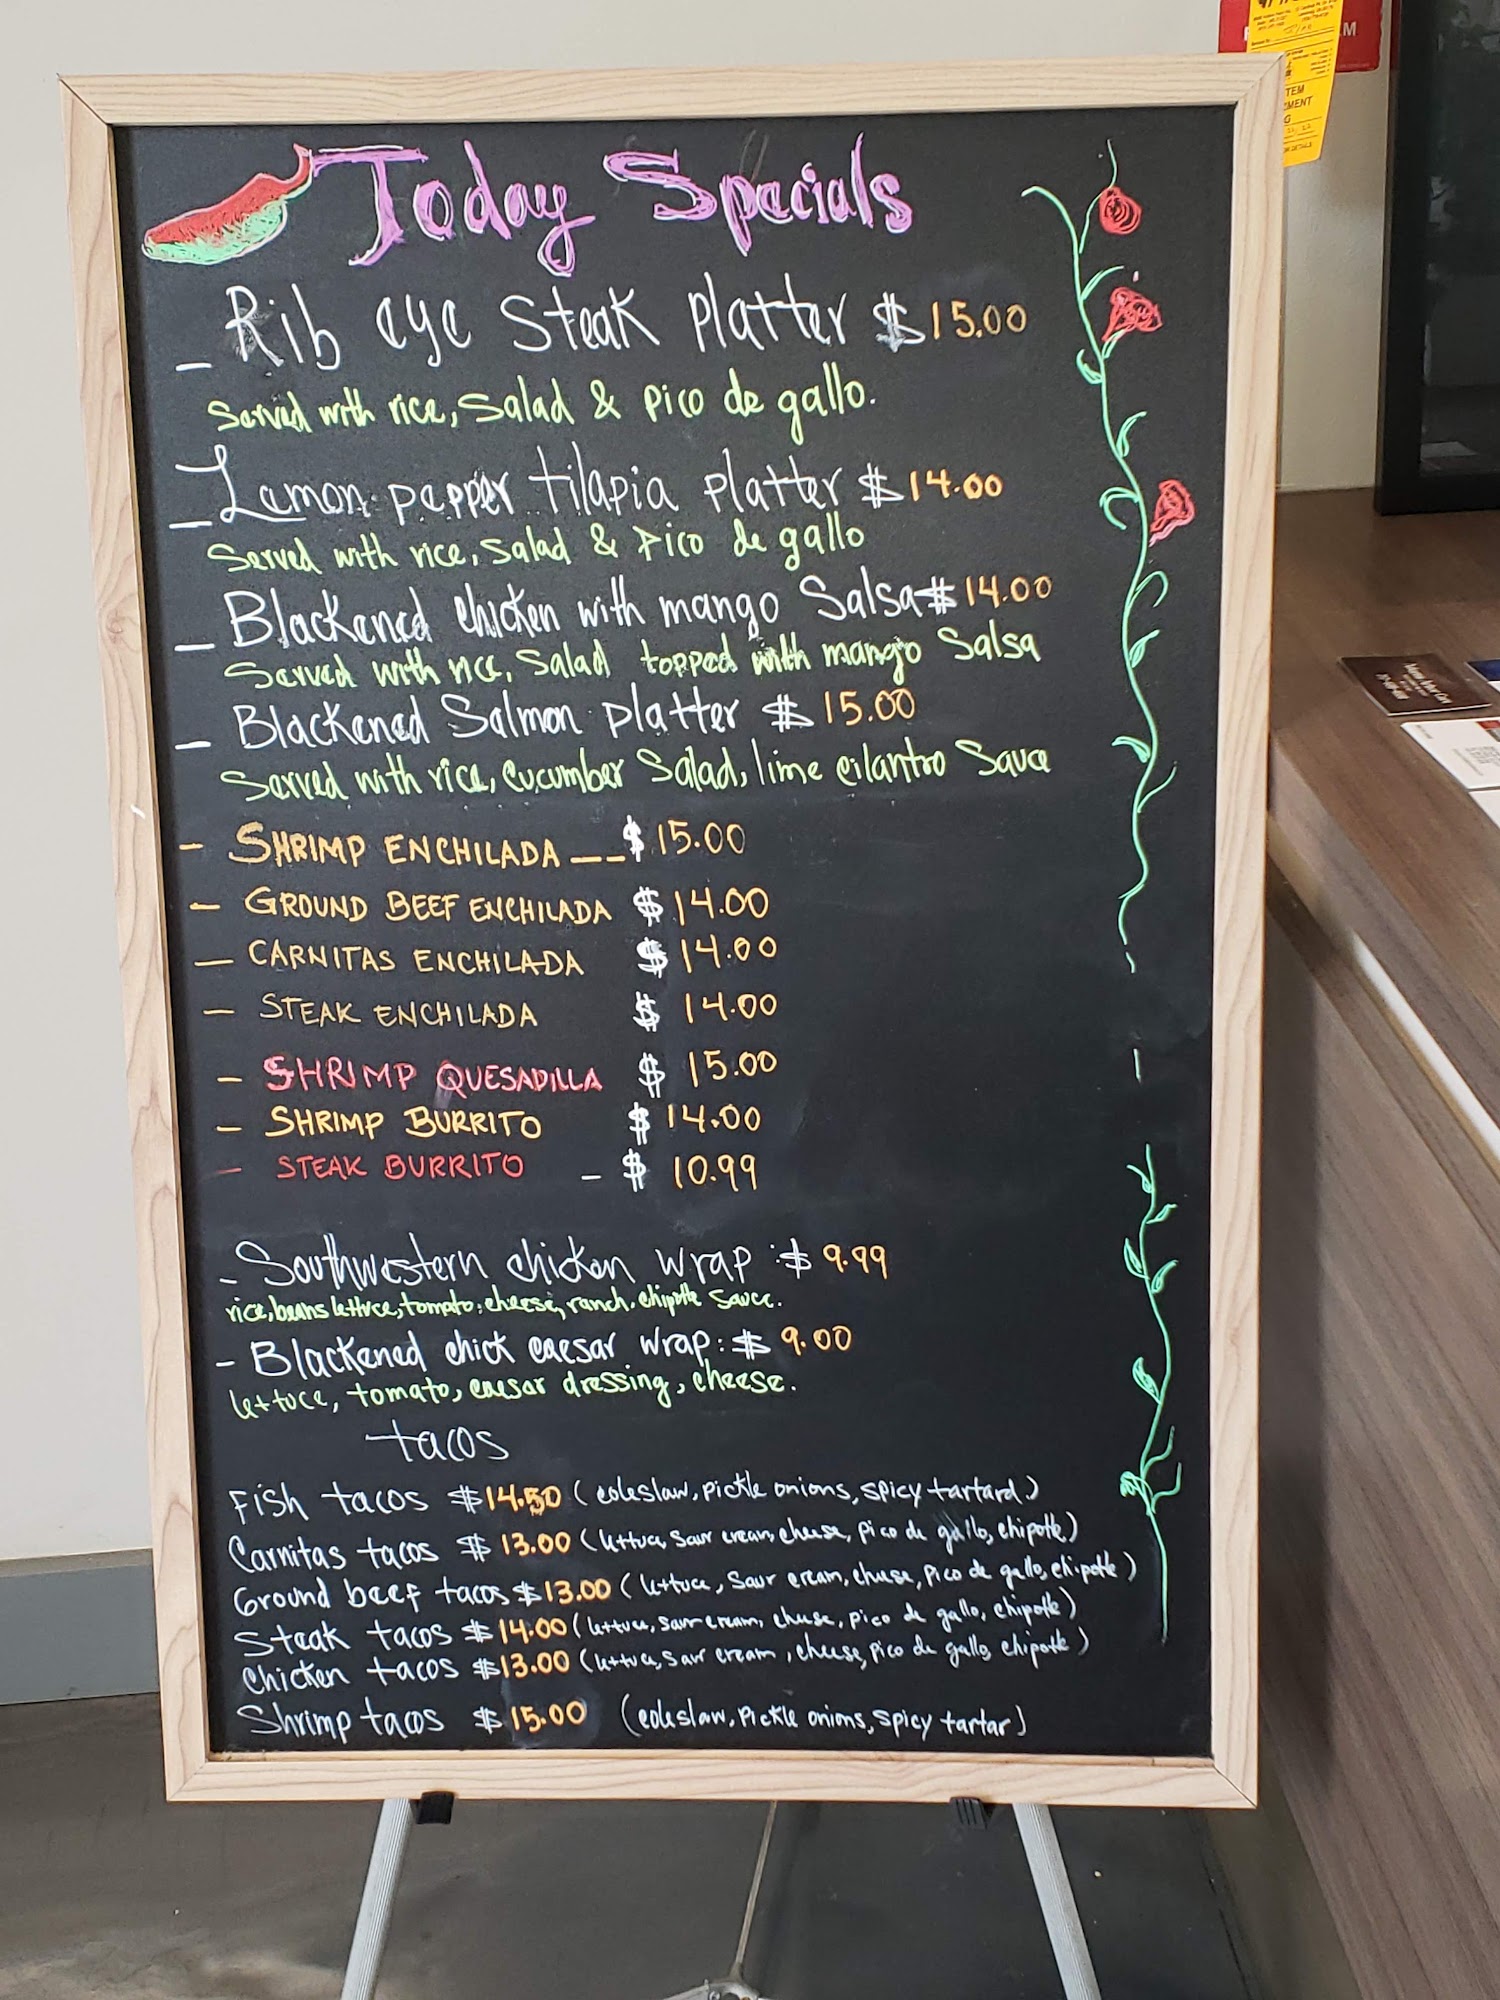 Today Specials
- Rib eye Steak Platter $15.00
Served with rice, Salad & Pico de gallo.
- Lemon pepper tilapia platter $14.00
Served with rice, Salad & Pico de gallo
- Blackened chicken with mango Salsa $14.00
Served with rice, Salad topped with mango Salsa
- Blackened Salmon platter $15.00
Served with rice, Cucumber Salad, lime Cilantro Sauce
- SHRIMP ENCHILADA ---$ 15.00
- GROUND BEEF ENCHILADA $14.00
- CARNITAS ENCHILADA $14.00
- STEAK ENCHILADA $ 14.00
- SHRIMP QUESADILLA $ 15.00
- SHRIMP BURRITO $ 14.00
- STEAK BURRITO - $ 10.99
- Southwestern chicken wrap :$ 9.99
rice, beans lettuce, tomato, cheese, ranch, chipotle Sauce.
- Blackened chick caesar wrap: $ 9.00
lettuce, tomato, caesar dressing, cheese.
tacos
Fish tacos $14.50 (coleslaw, pickle onions, spicy tartard)
Carnitas tacos $ 13.00 (lettuce, Sour cream, cheese, pico de gallo, chipotle)
Ground beef tacos $13.00 (lettuce, Sour cream, cheese, Pico de gallo, chipotle)
Steak tacos $14.00 (lettuce, Sour cream, cheese, pico de gallo, chipotle)
Chicken tacos $13.00 (lettuce, Sour cream, cheese, Pico de gallo, chipotle)
Shrimp tacos $15.00 (coleslaw, Pickle onions, spicy tartar)